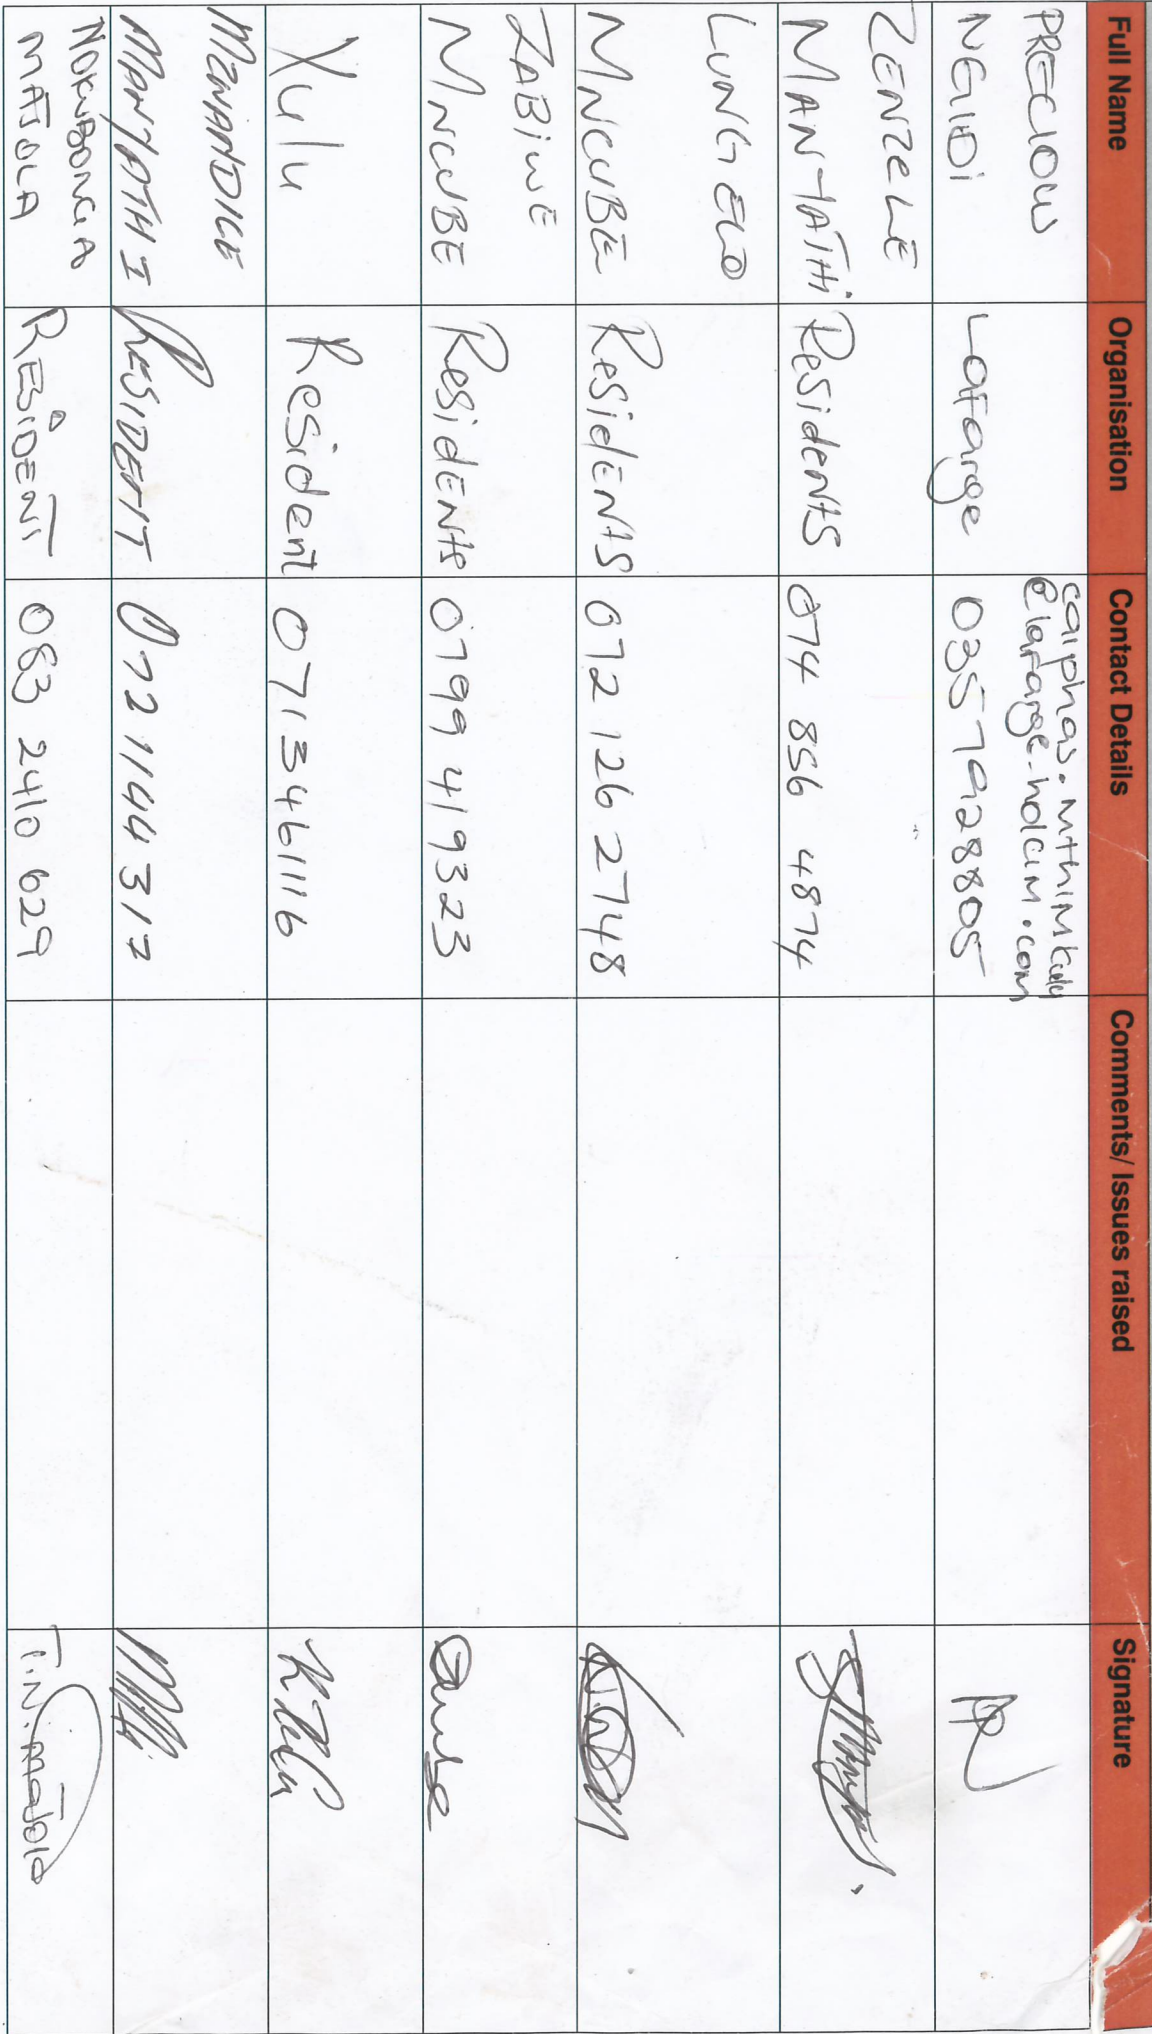 Full Name Organisation Contact Details Comments/ Issues raised Signature
PRECIOUS
NGIDI
Lafarge
caiphas.mthimkulu
@lafargeholcim.com
0357928805
ZENZELE
MANYATHI
Residents
074 856 4874
LUNGELO
MNCUBE
ResidENtS
072 126 2748
ZABiWE
MNCUBE
ResidENtS
0799 419323
Xulu
Resident
0713461116
MZWANDILE
MANYATHI
RESIDENT
0721144317
NOKUBONGA
MAJOLA
RESiDENT
083 2410 629
T.N.majola